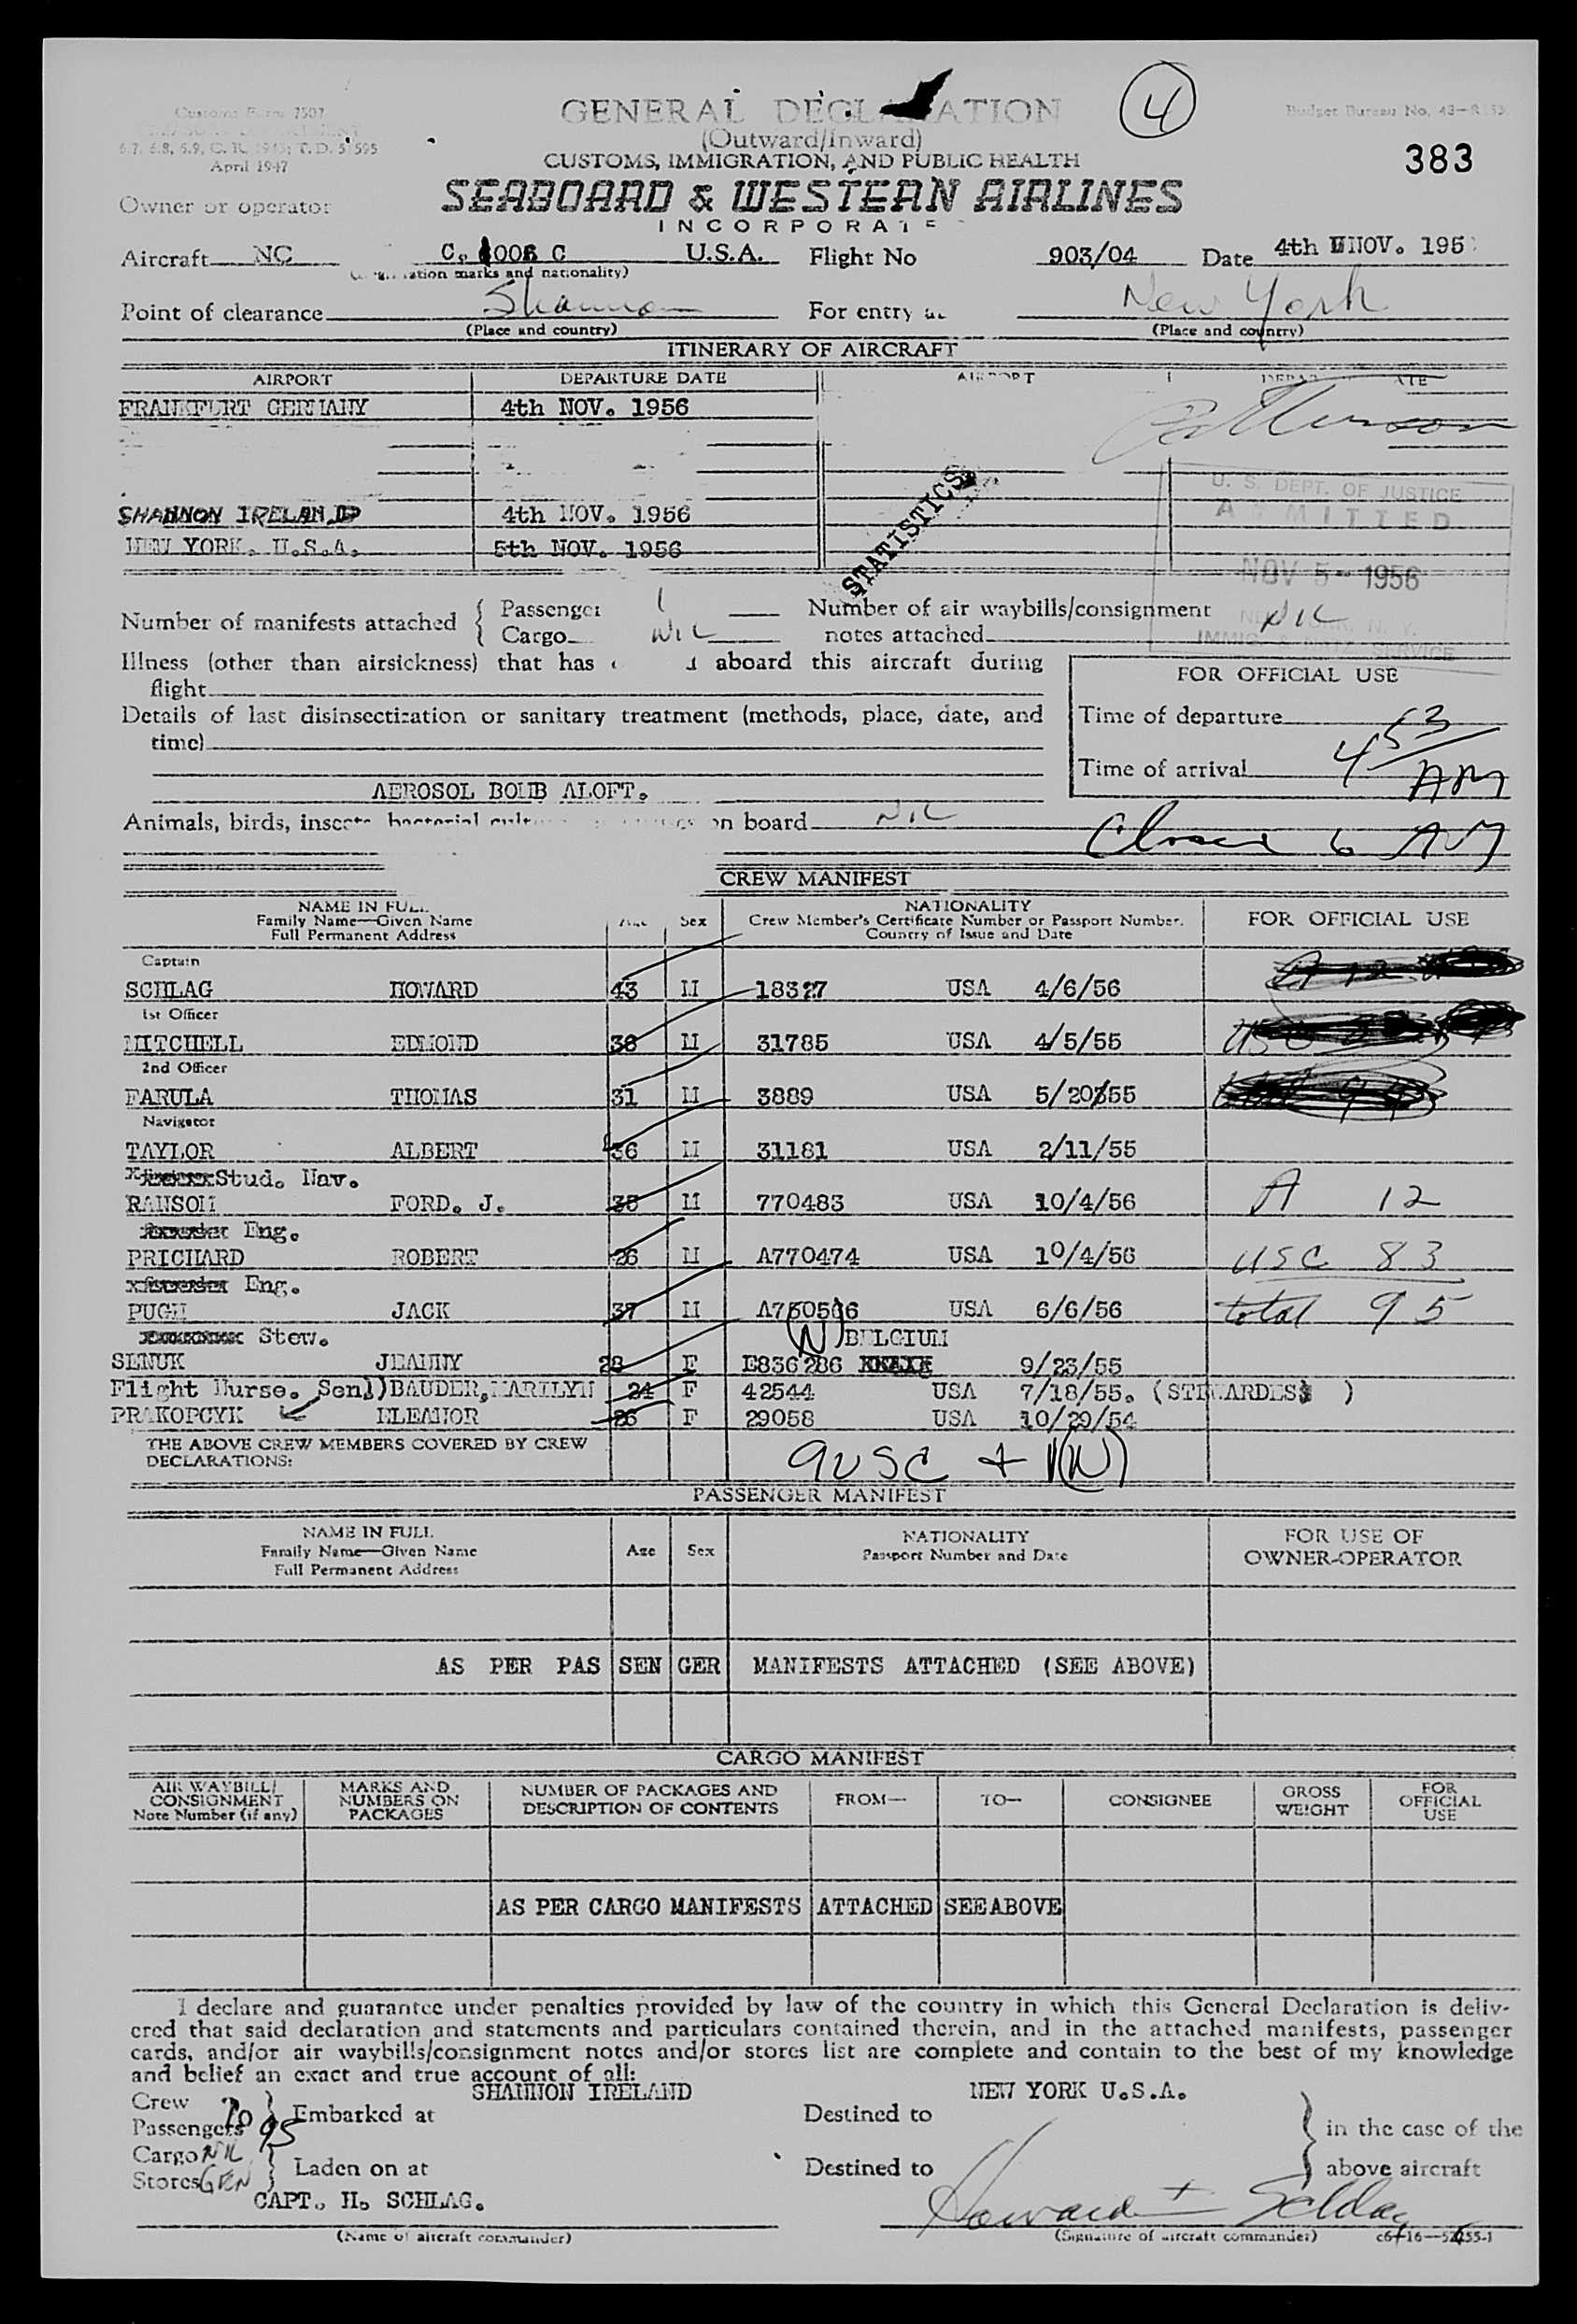 Customs Form 7507
6.7, 6.8, 6.9, C. R. 1943; T. D. 51595
April 1947
GENERAL DECLARATION
(Outward/Inward)
CUSTOMS, IMMIGRATION, AND PUBLIC HEALTH
4
Budget Bureau No. 43-
383
Owner or operator
SEABOARD & WESTERN AIRLINES
INCORPORATE
Aircraft NC C. 1006 C U.S.A. Flight No 903/04 Date 4th NOV. 195
(Registration marks and nationality)
Point of clearance Shannon For entry at New York
(Place and country) (Place and country)
ITINERARY OF AIRCRAFT
AIRPORT DEPARTURE DATE AIRPORT DEPARTURE DATE
FRANKFURT GERMANY 4th NOV. 1956
SHANNON IRELAND 4th NOV. 1956
NEW YORK. U.S.A. 5th NOV. 1956
STATISTICS
U. S. DEPT. OF JUSTICE
ADMITTED
NOV 5 - 1956
NEW YORK, N. Y.
IMMIG. & NATZ. SERVICE
Number of manifests attached { Passenger 1 Number of air waybills/consignment NIL
Cargo NIL notes attached
Illness (other than airsickness) that has aboard this aircraft during
flight
FOR OFFICIAL USE
Details of last disinsectization or sanitary treatment (methods, place, date, and
time)
Time of departure
Time of arrival 4 53 AM
AEROSOL BOMB ALOFT.
Animals, birds, insects, bacterial cultures on board NIL
Closed 6 AM
CREW MANIFEST
NAME IN FULL
Family Name—Given Name
Full Permanent Address
Age Sex
NATIONALITY
Crew Member's Certificate Number or Passport Number.
Country of Issue and Date
FOR OFFICIAL USE
Captain
SCHLAG HOWARD 43 M 18327 USA 4/6/56
1st Officer
MITCHELL EDMOND 38 M 31785 USA 4/5/55
2nd Officer
FARULA THOMAS 31 M 3889 USA 5/20/55
Navigator
TAYLOR ALBERT 36 M 31181 USA 2/11/55
Stud. Nav.
RANSOM FORD. J. 38 M 770483 USA 10/4/56 A 12
Eng.
PRICHARD ROBERT 26 M A770474 USA 10/4/56 USC 83
Eng.
PUGH JACK 37 M A760506 USA 6/6/56 total 95
Stew. (N) BELGIUM
SENUK JEANNY 28 F E836286 9/23/55
Flight Nurse. Senl) BAUDER, MARILYN 24 F 42544 USA 7/18/55. (STEWARDESS )
PRAKOPCYK ELEANOR 26 F 29058 USA 10/29/54
THE ABOVE CREW MEMBERS COVERED BY CREW
DECLARATIONS:
9 USC + 1(N)
PASSENGER MANIFEST
NAME IN FULL
Family Name—Given Name
Full Permanent Address
Age Sex
NATIONALITY
Passport Number and Date
FOR USE OF
OWNER-OPERATOR
AS PER PAS SEN GER MANIFESTS ATTACHED (SEE ABOVE)
CARGO MANIFEST
AIR WAYBILL/
CONSIGNMENT
Note Number (if any)
MARKS AND
NUMBERS ON
PACKAGES
NUMBER OF PACKAGES AND
DESCRIPTION OF CONTENTS
FROM—
TO—
CONSIGNEE
GROSS
WEIGHT
FOR
OFFICIAL
USE
AS PER CARGO MANIFESTS ATTACHED SEE ABOVE
I declare and guarantee under penalties provided by law of the country in which this General Declaration is deliv-
ered that said declaration and statements and particulars contained therein, and in the attached manifests, passenger
cards, and/or air waybills/consignment notes and/or stores list are complete and contain to the best of my knowledge
and belief an exact and true account of all:
SHANNON IRELAND NEW YORK U.S.A.
Crew 10 } Embarked at Destined to
Passengers 95 in the case of the
Cargo NIL } Laden on at Destined to above aircraft
Stores GEN
CAPT. H. SCHLAG. Howard Schlag
(Name of aircraft commander) (Signature of aircraft commander)